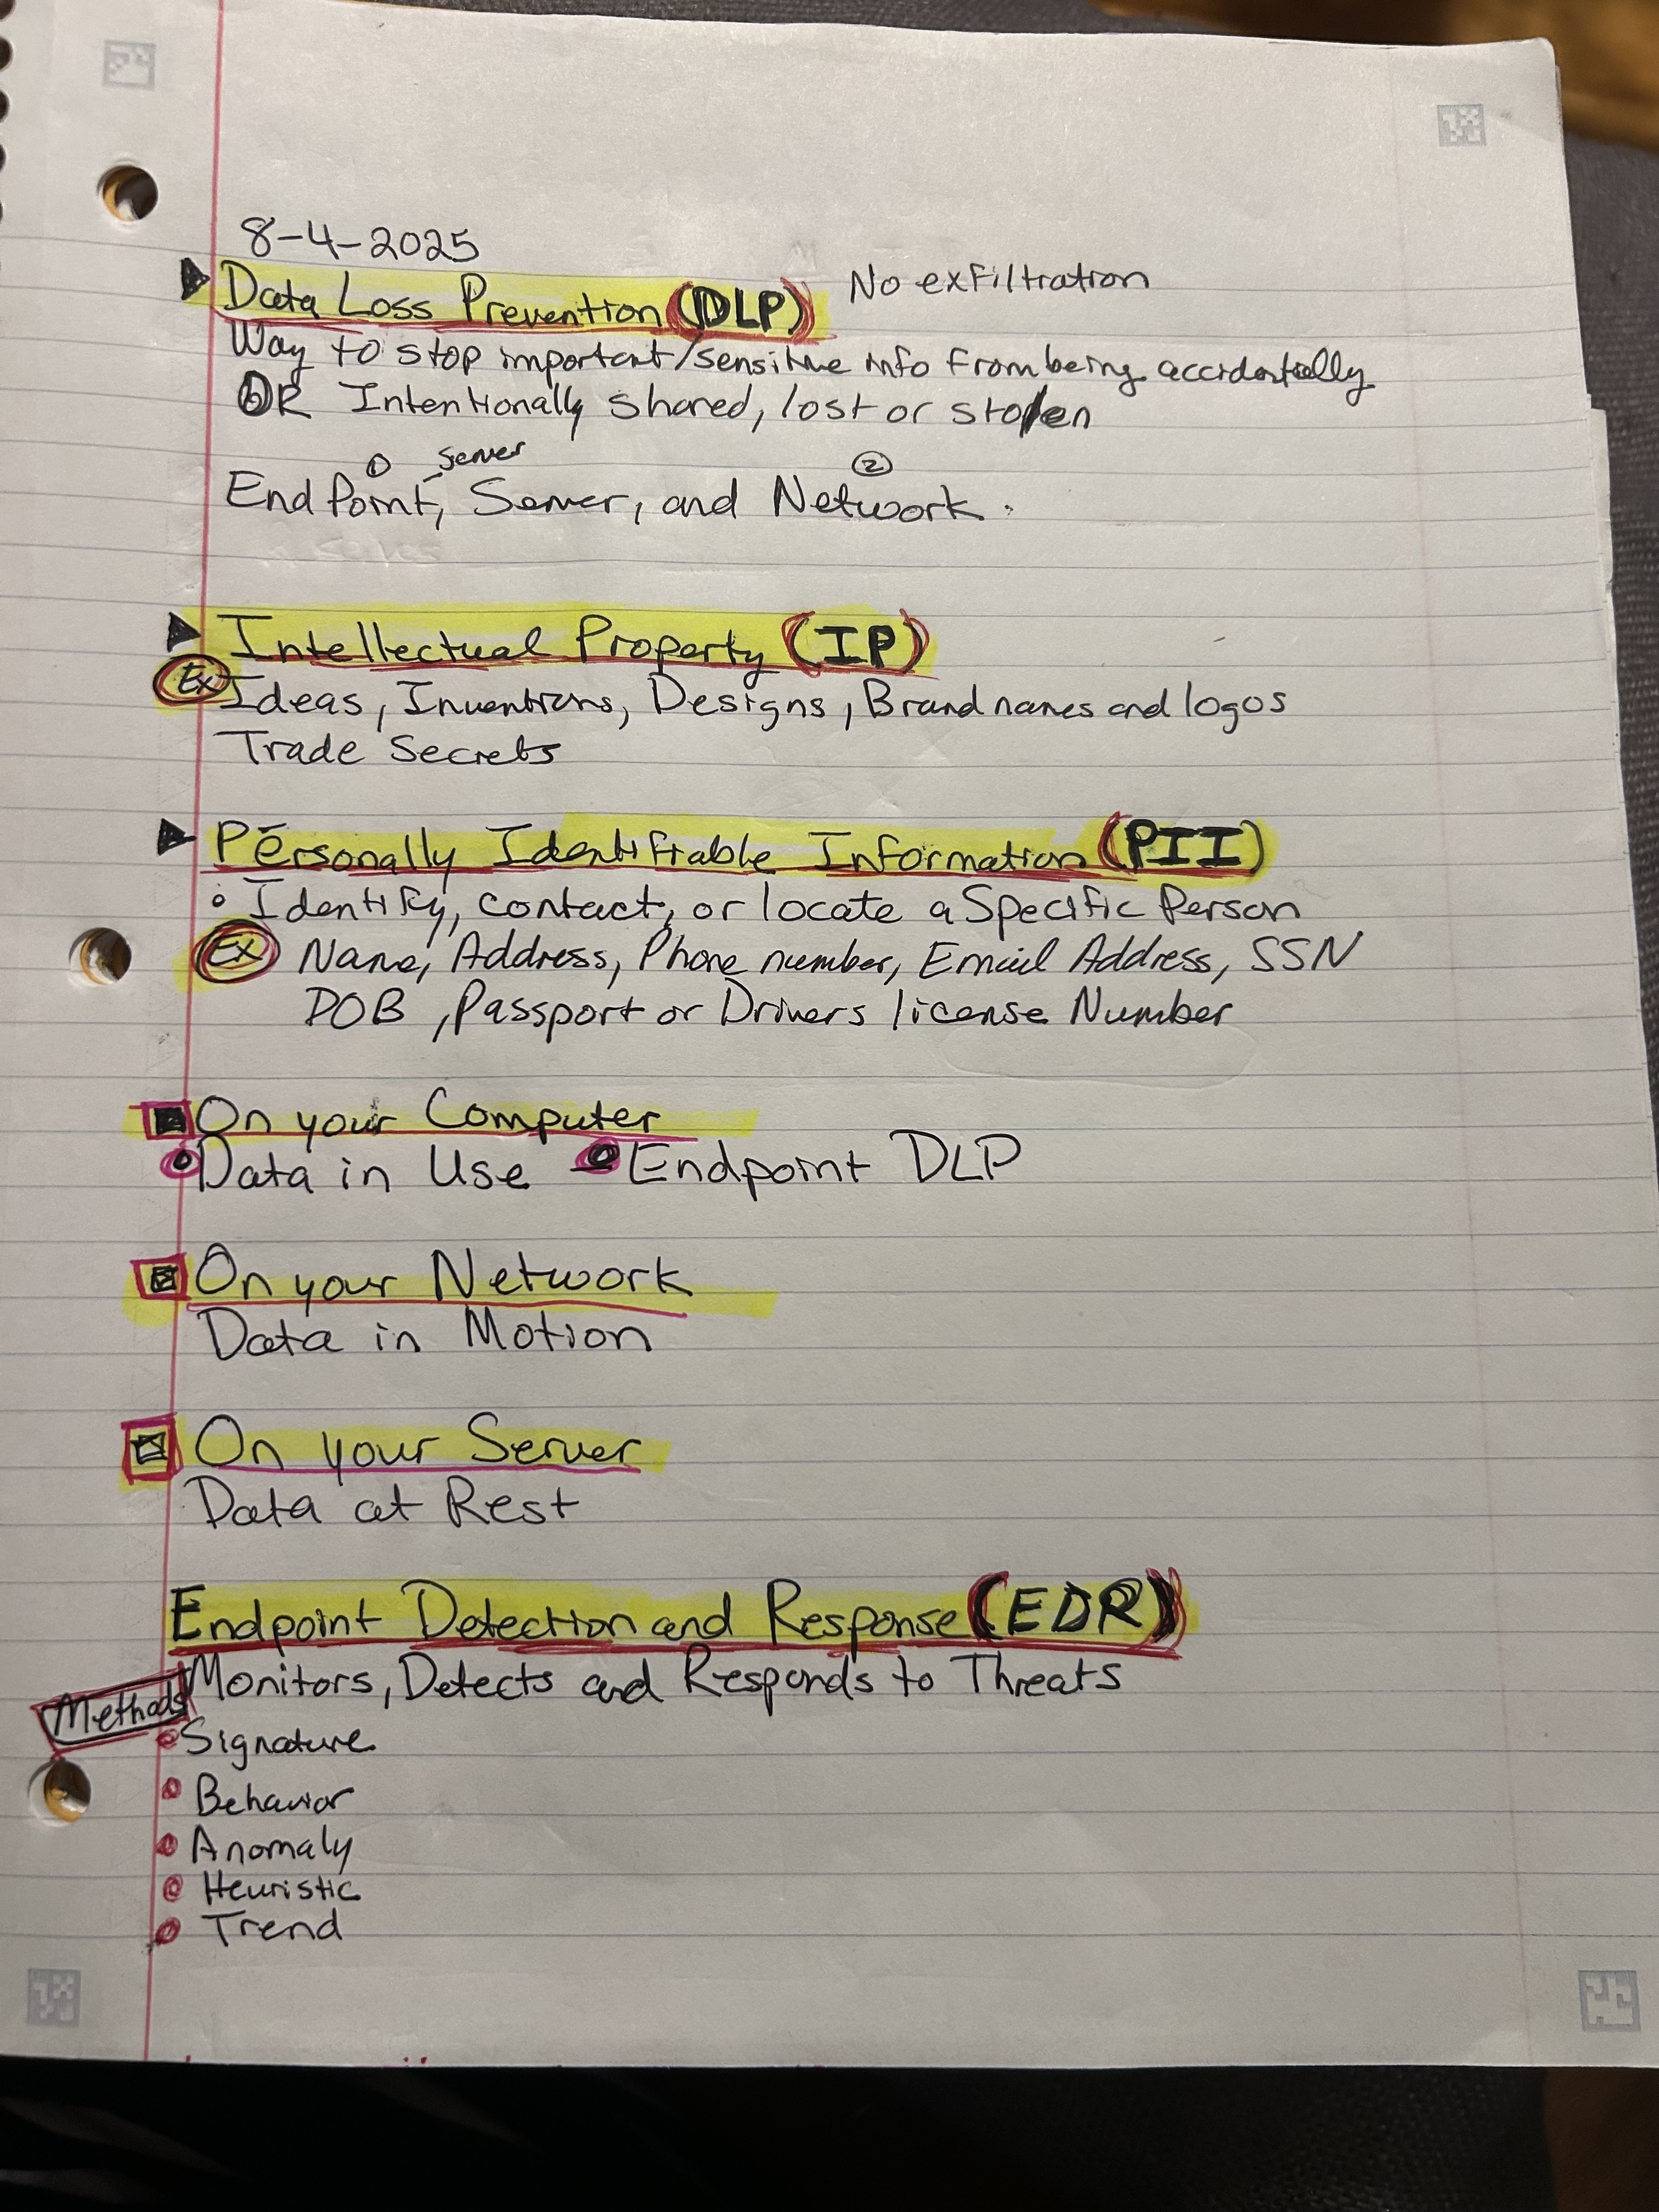 8-4-2025
Data Loss Prevention (DLP) No exfiltration
Way to stop important/sensitive info from being accidentally
OR Intentionally shared, lost or stolen
① server ②
EndPoint, Server, and Network.
Intellectual Property (IP)
Ex Ideas, Inventions, Designs, Brand names and logos
Trade Secrets
Personally Identifiable Information (PII)
• Identify, contact, or locate a Specific Person
Ex Name, Address, Phone number, Email Address, SSN
DOB, Passport or Drivers license Number
On your Computer
• Data in Use • Endpoint DLP
On your Network
Data in Motion
On your Server
Data at Rest
Endpoint Detection and Response (EDR)
Monitors, Detects and Responds to Threats
Methods
• Signature
• Behavior
• Anomaly
• Heuristic
• Trend